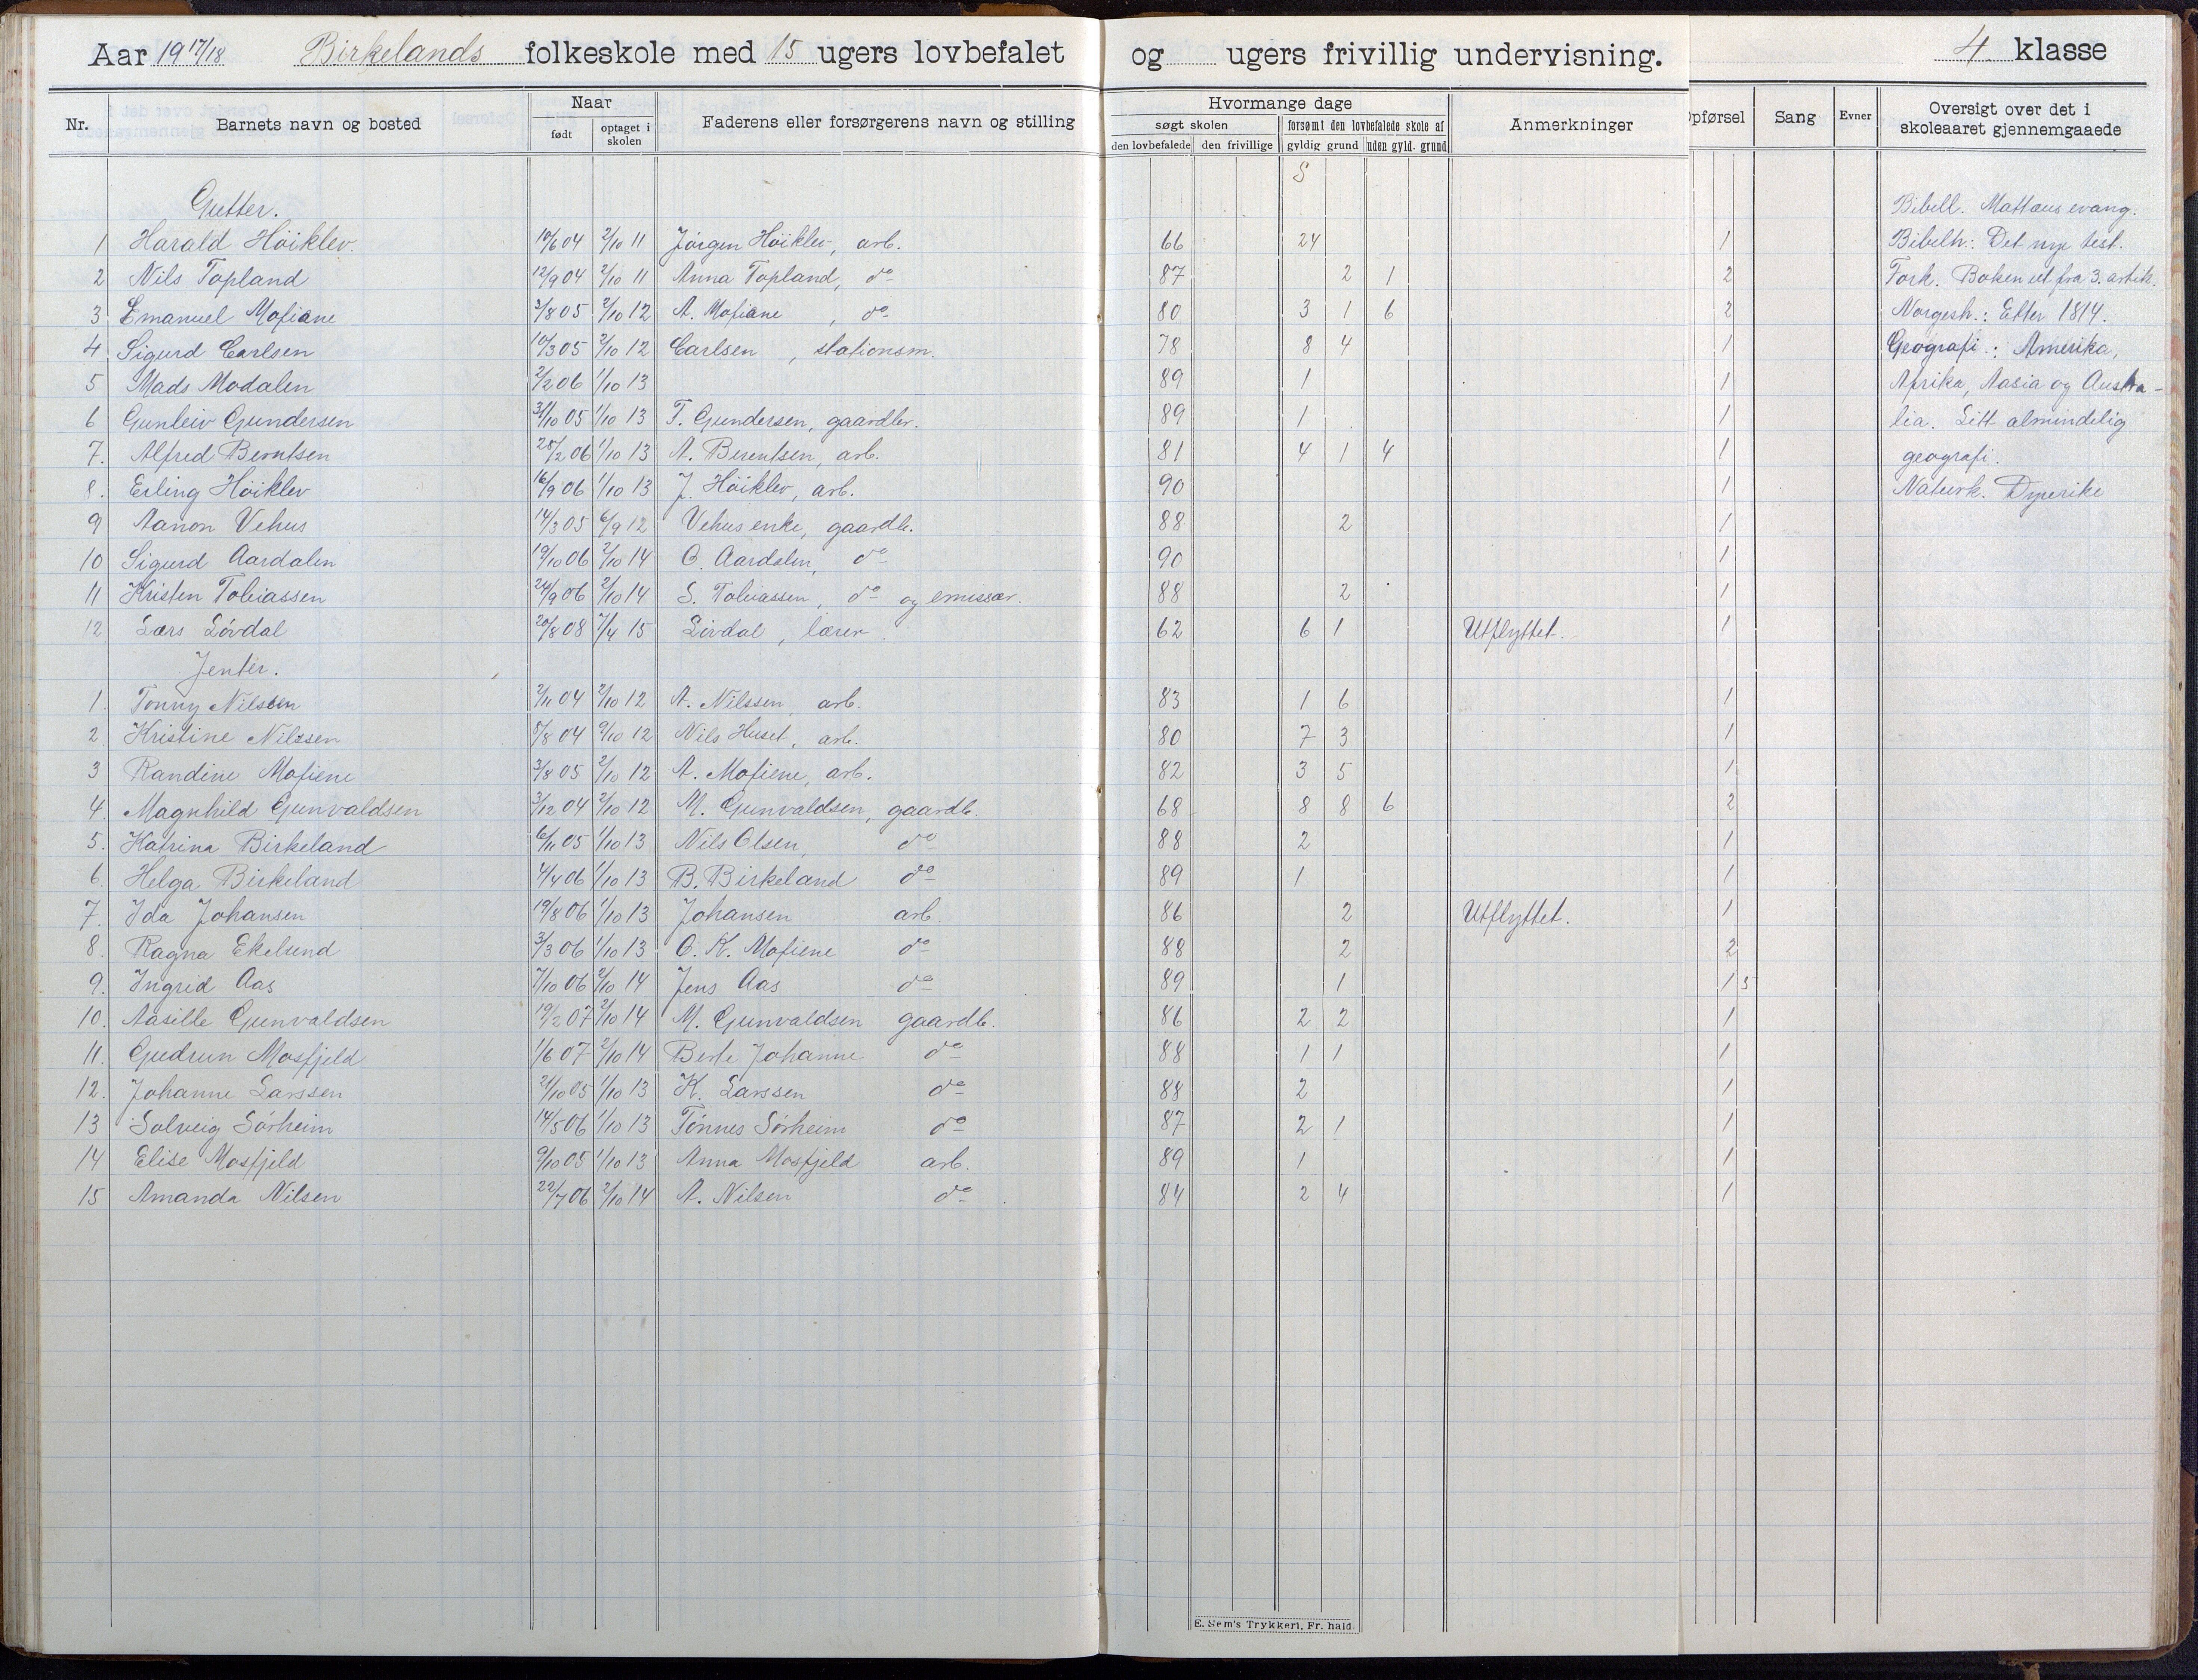 Aar 1917/18 Birkelands folkeskole med 15 ugers lovbefalet og ugers frivillig undervisning. 4. klasse
Nr. Barnets navn og bosted Naar født optaget i skolen Faderens eller forsørgerens navn og stilling Hvormange dage søgt skolen den lovbefalede den frivillige forsømt den lovbefalede skole af gyldig grund uden gyld. grund Anmerkninger Opførsel Sang Evner Oversigt over det i skoleaaret gjennemgaaede
S
Gutter. Bibell. Mattæus evang.
1 Harald Höiklev. 10/6 04 2/10 11 Jörgen Höiklev, arb. 66 24 1 Bibelh.: Det nye test.
2 Nils Topland 12/9 04 2/10 11 Anna Topland, do 87 2 1 2 Fork. Boken ut fra 3. artik.
3 Emanuel Mofiane 3/8 05 2/10 12 A. Mofiane, do 80 3 1 6 2 Norgesh.: Etter 1814.
4 Sigurd Carlsen 10/3 05 2/10 12 Carlsen, stationsm. 78 8 4 1 Geografi.: Amerika,
5 Mads Modalen 2/2 06 1/10 13 89 1 1 Afrika, Aasia og Austra-
6 Gunleiv Gundersen 31/10 05 1/10 13 T. Gundersen, gaardbr. 89 1 1 lia. Litt almindelig
7. Alfred Berntsen 28/2 06 1/10 13 A. Berentsen, arb. 81 4 1 4 1 geografi.
8. Erling Höiklev 16/9 06 1/10 13 J. Höiklev, arb. 90 1 Naturk. Dyrerike
9 Aanon Vehus 14/3 05 6/9 12 Vehus enke, gaardb. 88 2 1
10 Sigurd Aardalen 19/10 06 2/10 14 O. Aardalen, do 90 1
11 Kristen Tobiassen 24/9 06 2/10 14 S. Tobiassen, do og emissær. 88 2 1
12 Lars Lövdal 20/8 08 7/4 15 Lövdal, lærer. 62 6 1 Utflyttet. 1
Jenter.
1. Tonny Nilsen 2/11 04 2/10 12 A. Nilssen, arb. 83 1 6 1
2. Kristine Nilssen 5/8 04 9/10 12 Nils Huset, arb. 80 7 3 1
3 Randine Mofiene 3/8 05 2/10 12 A. Mofiene, arb. 82 3 5 1
4. Magnhild Gunvaldsen 3/12 04 2/10 12 M. Gunvaldsen, gaardb. 68 8 8 6 2
5. Katrina Birkeland 6/11 05 1/10 13 Nils Olsen, do 88 2 1
6. Helga Birkeland 4/4 06 1/10 13 B. Birkeland do 89 1 1
7. Ida Johansen 19/8 06 1/10 13 Johansen arb. 86 2 Utflyttet. 1
8. Ragna Ekelund 3/3 06 1/10 13 O. K. Mofiene do 88 2 2
9. Ingrid Aas 7/10 06 2/10 14 Jens Aas do 89 1 1 5
10. Aasille Gunvaldsen 19/2 07 2/10 14 M. Gunvaldsen gaardb. 86 2 2 1
11. Gudrun Mosfjeld 1/6 07 2/10 14 Berte Johanne do 88 1 1 1
12. Johanne Larssen 21/10 05 1/10 13 K. Larssen do 88 2 1
13 Solveig Sörheim 14/5 06 1/10 13 Tönnes Sörheim do 87 2 1 1
14 Elise Mosfjeld 9/10 05 1/10 13 Anna Mosfjeld arb. 89 1 1
15 Amanda Nilsen 22/7 06 2/10 14 A. Nilsen do 84 2 4 1
E. Sem's Trykkeri, Fr. hald.